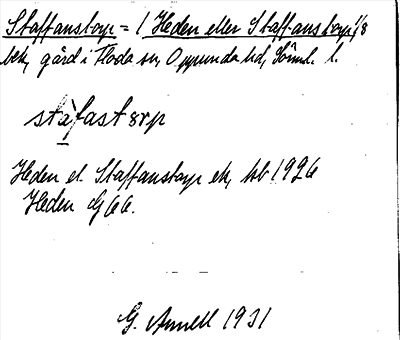 Staffanstorp = (Heden eller Staffanstorp 1/8
bek, gård i Floda sn, Oppunda hd, Södml. l.
stàfastørp
Heden el. Staffanstorp ek, hb 1926
Heden Gg 66.
G. Annell 1931